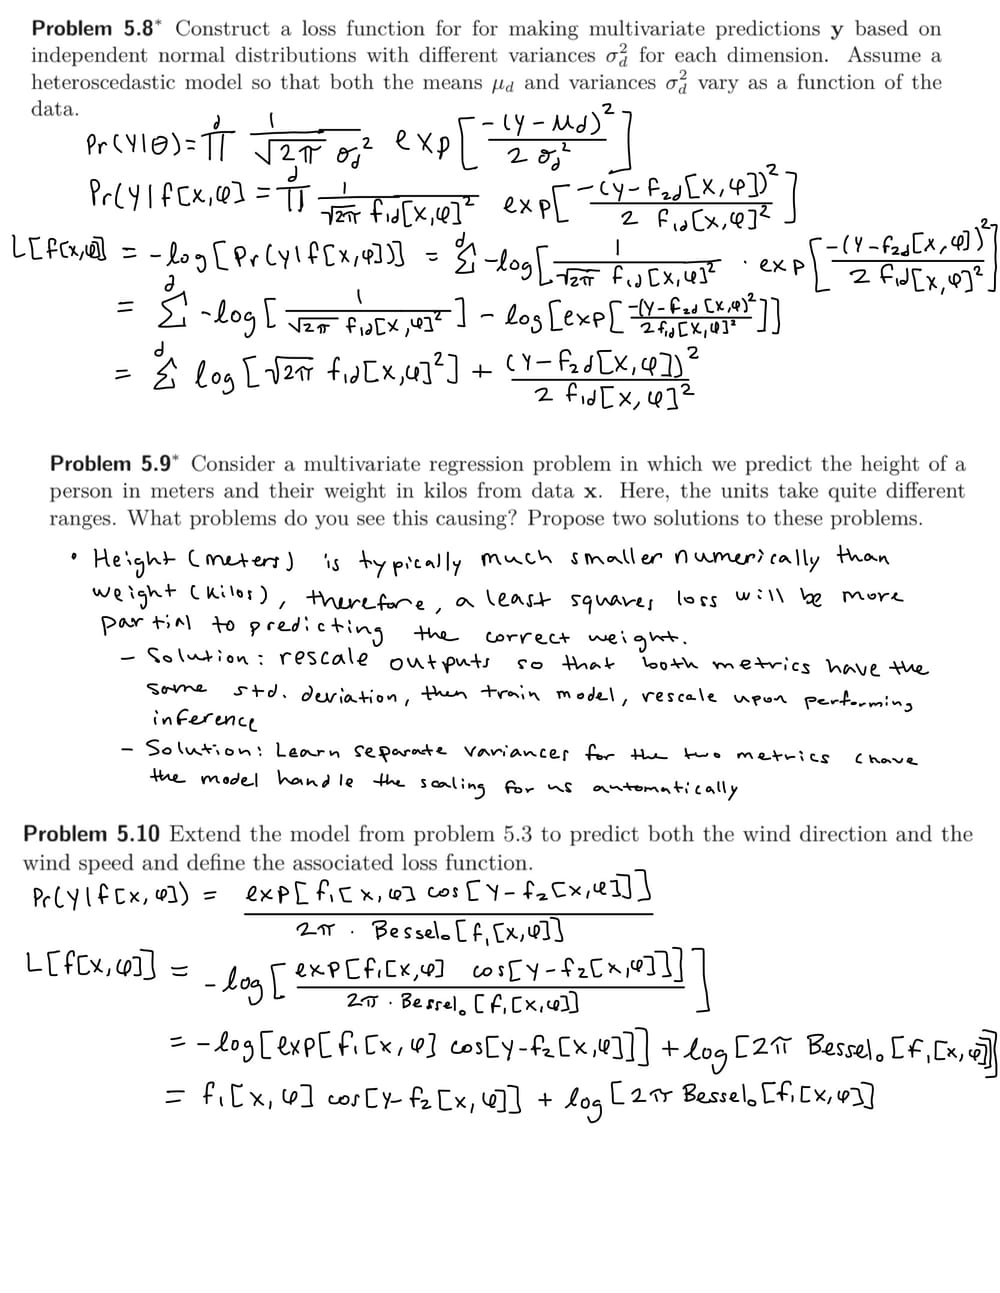 Problem 5.8* Construct a loss function for for making multivariate predictions y based on
independent normal distributions with different variances σ_d^2 for each dimension. Assume a
heteroscedastic model so that both the means μ_d and variances σ_d^2 vary as a function of the
data.
Pr(y|θ) = ∏^d 1/(√2π σ_d^2) exp[-(y-μ_d)^2 / 2σ_d^2]
Pr(y|f[x,φ] = ∏^d 1/(√2π f_1d[x,φ]^2) exp[-(y-f_2d[x,φ])^2 / 2 f_1d[x,φ]^2]
L[f(x,φ] = -log[Pr(y|f[x,φ])] = Σ^d -log[1/(√2π f_1d[x,φ]^2) · exp[-(y-f_2d[x,φ])^2 / 2 f_1d[x,φ]^2]
= Σ^d -log[1/(√2π f_1d[x,φ]^2)] - log[exp[-(y-f_2d[x,φ)^2 / 2f_1d[x,φ]^2]]
= Σ^d log[√2π f_1d[x,φ]^2] + (y-f_2d[x,φ])^2 / 2 f_1d[x,φ]^2
Problem 5.9* Consider a multivariate regression problem in which we predict the height of a
person in meters and their weight in kilos from data x. Here, the units take quite different
ranges. What problems do you see this causing? Propose two solutions to these problems.
• Height (meters) is typically much smaller numerically than
weight (kilos), therefore, a least squares loss will be more
partial to predicting the correct weight.
- Solution: rescale outputs so that both metrics have the
same std. deviation, then train model, rescale upon performing
inference
- Solution: Learn separate variances for the two metrics (have
the model handle the scaling for us automatically
Problem 5.10 Extend the model from problem 5.3 to predict both the wind direction and the
wind speed and define the associated loss function.
Pr(y|f[x,φ]) = exp[f_1[x,φ] cos[y-f_2[x,φ]]] / 2π · Bessel_0[f_1[x,φ]]
L[f[x,φ]] = -log[exp[f_1[x,φ] cos[y-f_2[x,φ]]] / 2π · Bessel_0[f_1[x,φ]]]
= -log[exp[f_1[x,φ] cos[y-f_2[x,φ]]] + log[2π Bessel_0[f_1[x,φ]]
= f_1[x,φ] cos[y-f_2[x,φ]] + log[2π Bessel_0[f_1[x,φ]]